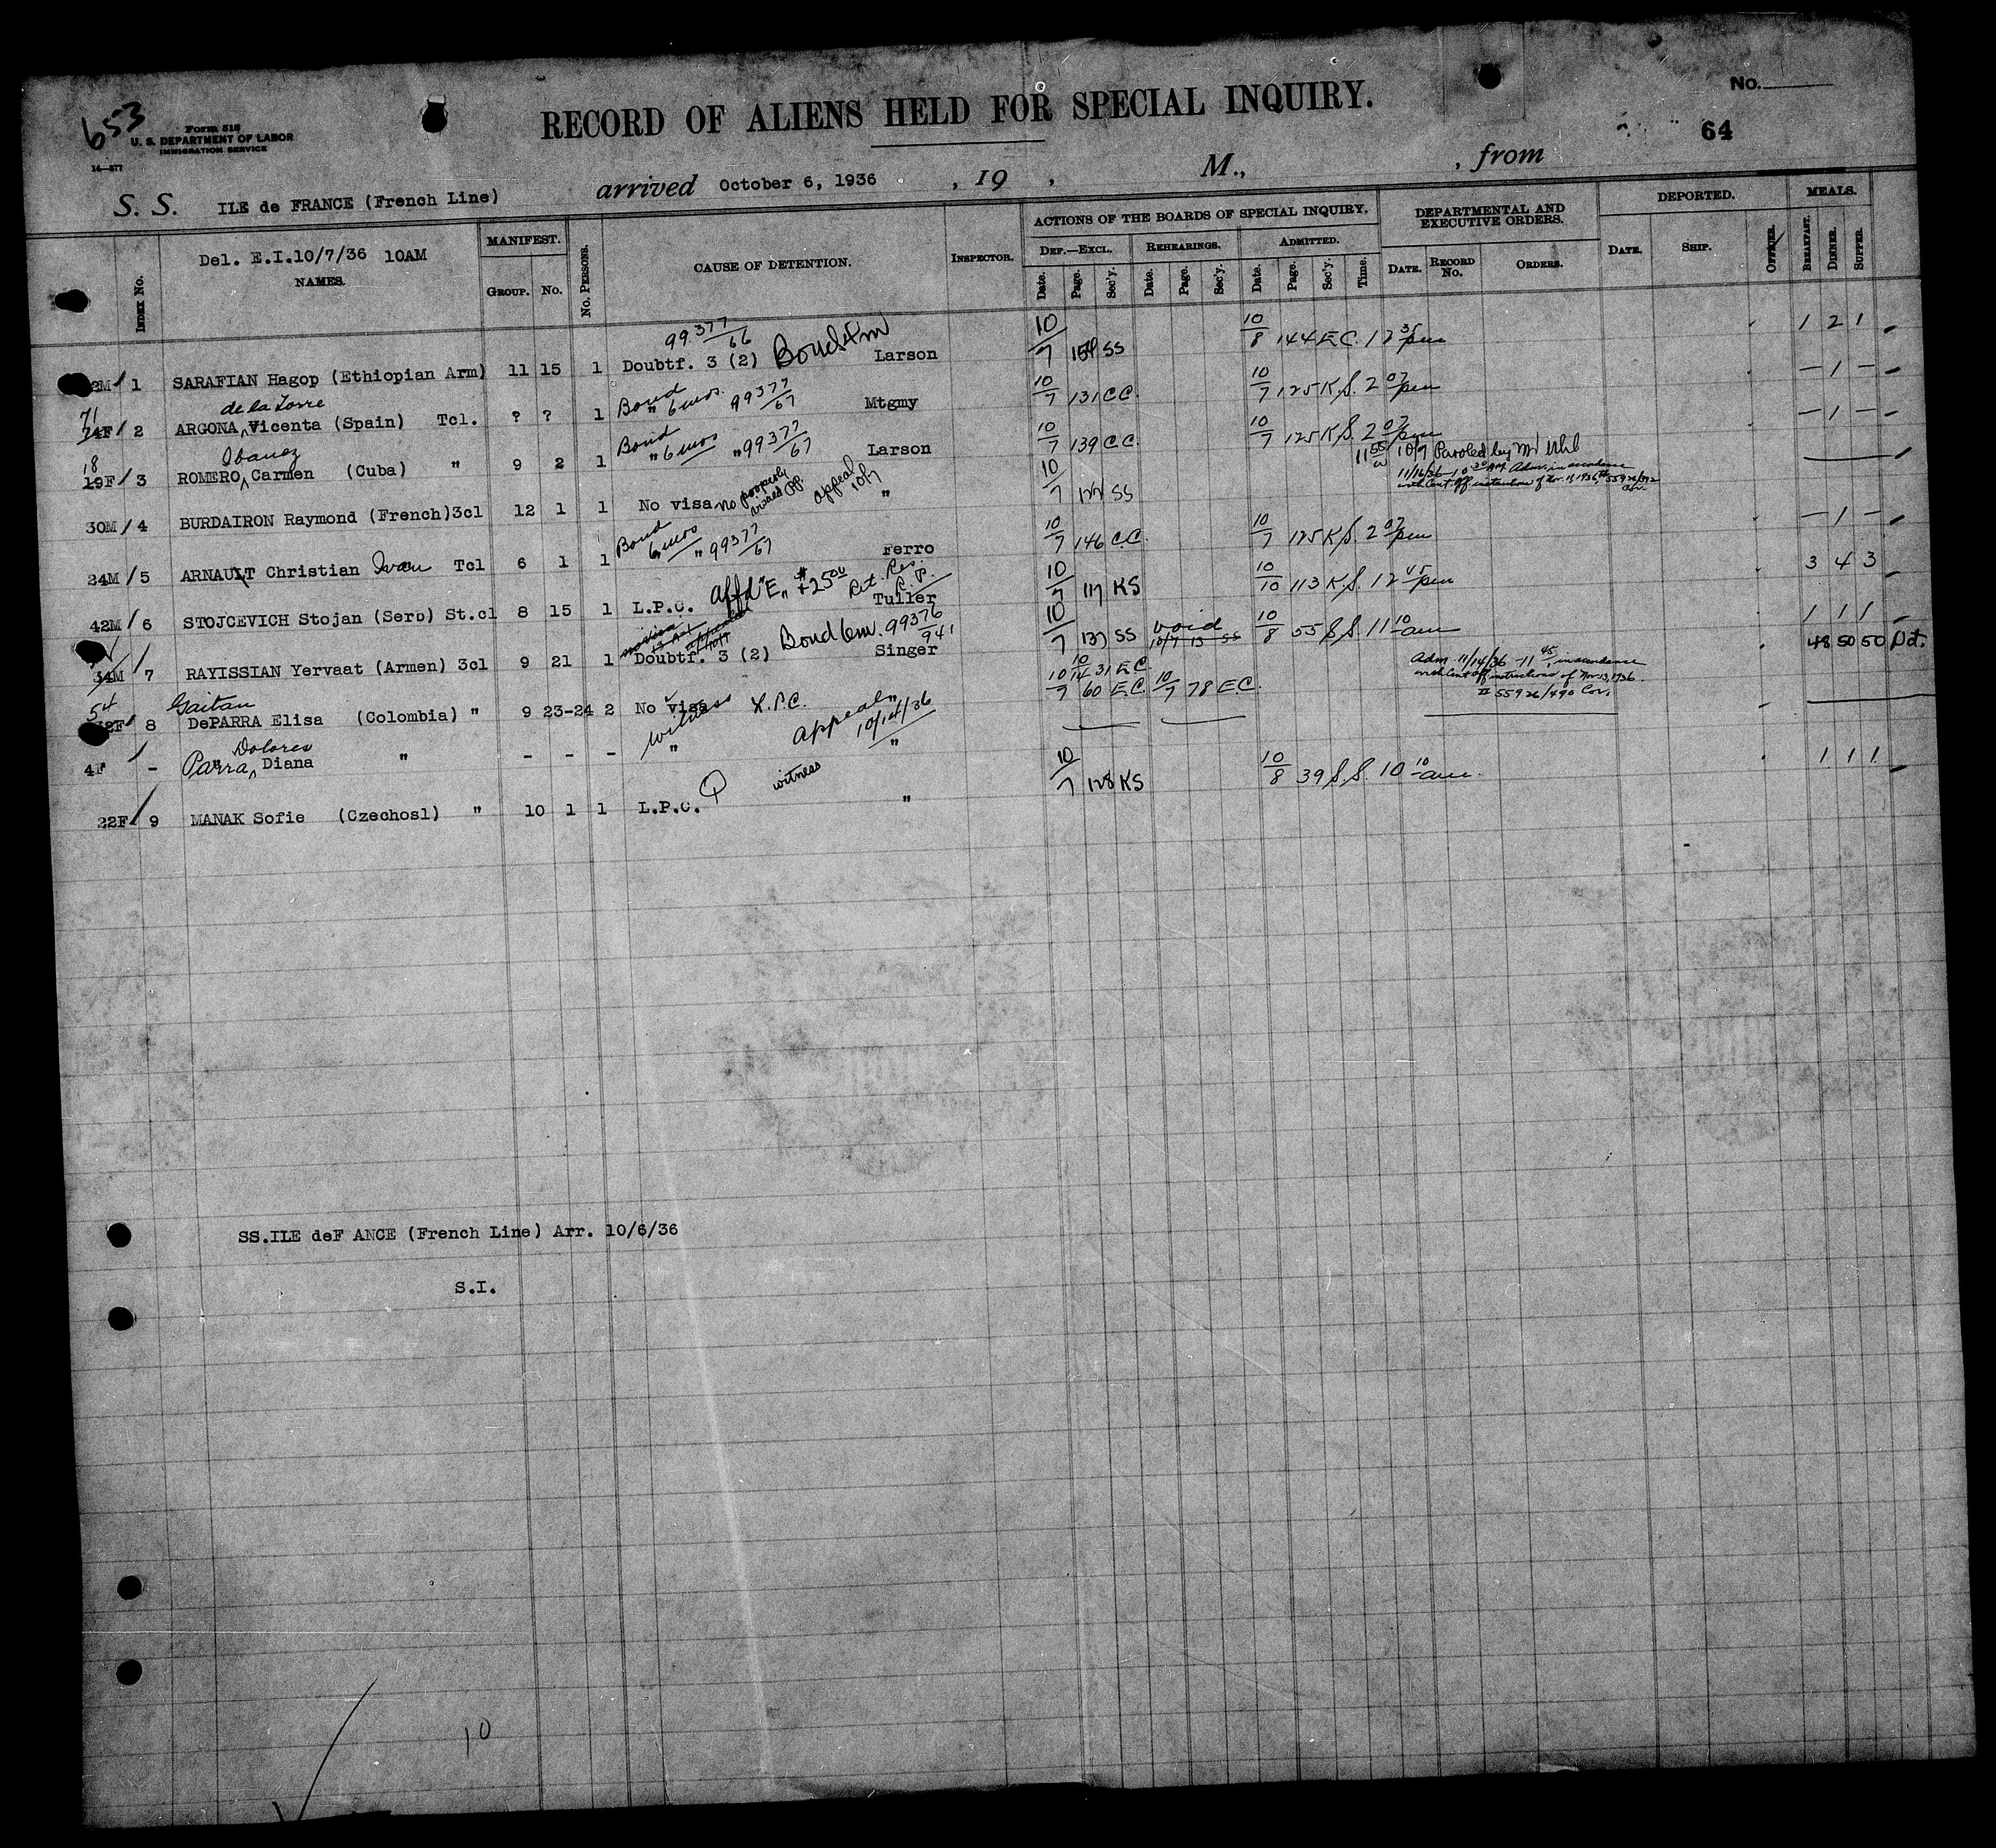 653
Form 518
U. S. DEPARTMENT OF LABOR
IMMIGRATION SERVICE
14—577
RECORD OF ALIENS HELD FOR SPECIAL INQUIRY.
No.
64
S. S. ILE de FRANCE (French Line) arrived October 6, 1936 , 19 , M., , from
Del. E.I.10/7/36 10AM
INDEX NO. NAMES. MANIFEST. GROUP. NO. NO. PERSONS. CAUSE OF DETENTION. INSPECTOR.
ACTIONS OF THE BOARDS OF SPECIAL INQUIRY.
DEF.—EXCL. Date. Page. Sec'y. REHEARINGS. Date. Page. Sec'y. ADMITTED. Date. Page. Sec'y. Time.
DEPARTMENTAL AND EXECUTIVE ORDERS. DATE. RECORD No. ORDERS.
DEPORTED. DATE. SHIP. OFFICER.
MEALS. BREAKFAST. DINNER. SUPPER.
99377/66 Bond 6m
1 SARAFIAN Hagop (Ethiopian Arm) 11 15 1 Doubtf. 3 (2) Larson 10/7 SS 10/8 144 E.C. 12 35 pm 1 2 1
71 de la Torre
74F 2 ARGONA, Vicenta (Spain) Tcl. ? ? 1 Bond 6 mos. 99377/67 Mtgmy 10/7 131 C.C. 10/7 125 K.S. 2 07 pm — 1 —
18 Ibanez
19F 3 ROMERO, Carmen (Cuba) " 9 2 1 Bond " 6 mos " 99377/67 Larson 10/7 139 C.C. 10/7 125 K.S. 2 07 pm — 1 —
30M 4 BURDAIRON Raymond (French)3cl 12 1 1 No visa no properly visaed pp. appeal 10/7 " 10/7 122 SS 11 55 10/9 Paroled by Mr Uhl
11/16/36 10 30 AM Adm. in accordance with Cent. Off. instructions of Nov. 13, 1936, # 55926/392 Cor.
24M 5 ARNAULT Christian Ivan Tcl 6 1 1 Bond 6 mos " 99377/67 Ferro 10/7 146 C.C. 10/7 125 K.S. 2 07 pm — 1 —
42M 6 STOJCEVICH Stojan (Serb) St.cl 8 15 1 L.P.C. affd "E" Ret. Res. R.P. Tuller 10/7 117 KS 10/10 113 K.S. 12 45 pm 3 4 3
34M 7 RAYISSIAN Yervaat (Armen) 3cl 9 21 1 Doubtf. 3 (2) Bond 6m. 99376/941 Singer 10/7 137 SS void 10/7 13 SS 10/8 55 S.S. 11 10 am 1 1 1
54 Gaitan
8 DePARRA Elisa (Colombia) " 9 23-24 2 No visa L.P.C. " 10/14 31 E.C. 10/7 60 E.C. 10/7 78 E.C. Adm. 11/14/36 11 45, in accordance with Cent Off instructions of Nov 13, 1936. # 55926/490 Cor. 48 50 50 Det.
witness appeal 10/14/36
Dolores
4F - Parra, Diana " - - - " "
22F 9 MANAK Sofie (Czechosl) " 10 1 1 L.P.C. witness " 10/7 128 KS 10/8 39 S.S. 10 10 am. 1 1 1
SS.ILE deF ANCE (French Line) Arr. 10/6/36
S.I.
10